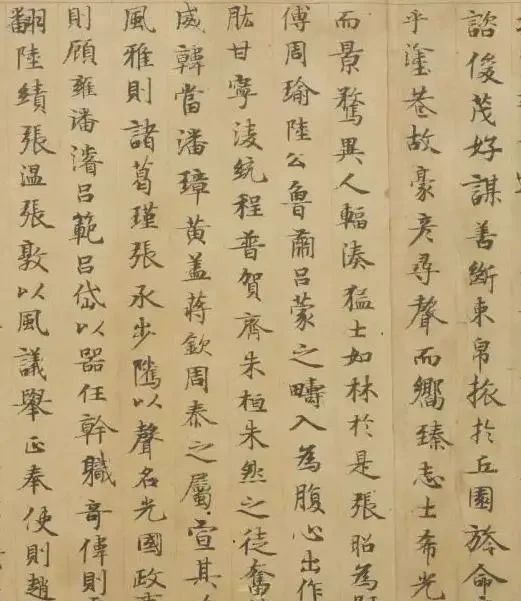 諮俊茂好謀善斷束帛旅於丘園旍命
乎塗巷故豪彦尋聲而嚮臻志士希光
而景騖異人輻湊猛士如林於是張昭為
傅周瑜陸公魯肅呂蒙之疇入為腹心出作
肱甘寧淩統程普賀齊朱桓朱然之徒奮
威韓當潘璋黃蓋蔣欽周泰之屬宣其
風雅則諸葛瑾張承步騭以聲名光國政
則顧雍潘濬呂範呂岱以器任幹職奇偉則
翻陸績張溫張敦以風議舉正奉使則趙